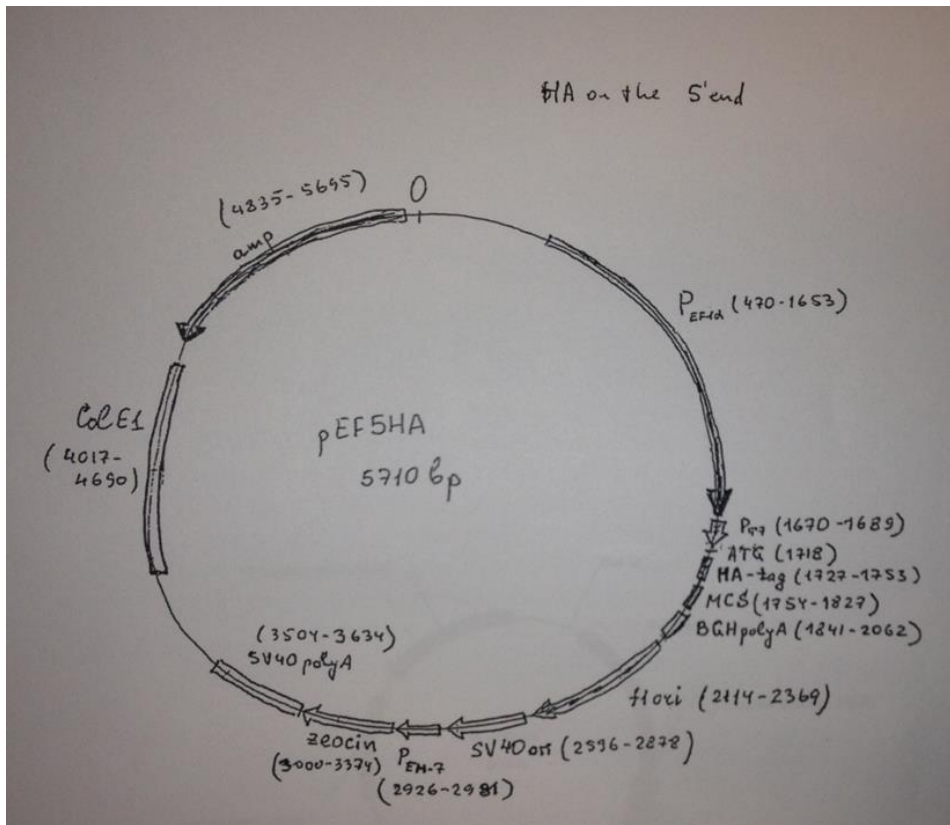 HA on the 5'end
0
(4835-5695)
amp
P EF1α (470-1653)
ColE1
(4017-
4690)
pEF5HA
5710 bp
P T7 (1670-1689)
ATG (1718)
HA-tag (1727-1753)
MCS (1754-1827)
BGHpolyA (1841-2062)
f1 ori (2114-2369)
SV40 ori (2596-2878)
P EM-7
(2926-2981)
zeocin
(3000-3374)
(3504-3634)
SV40 polyA